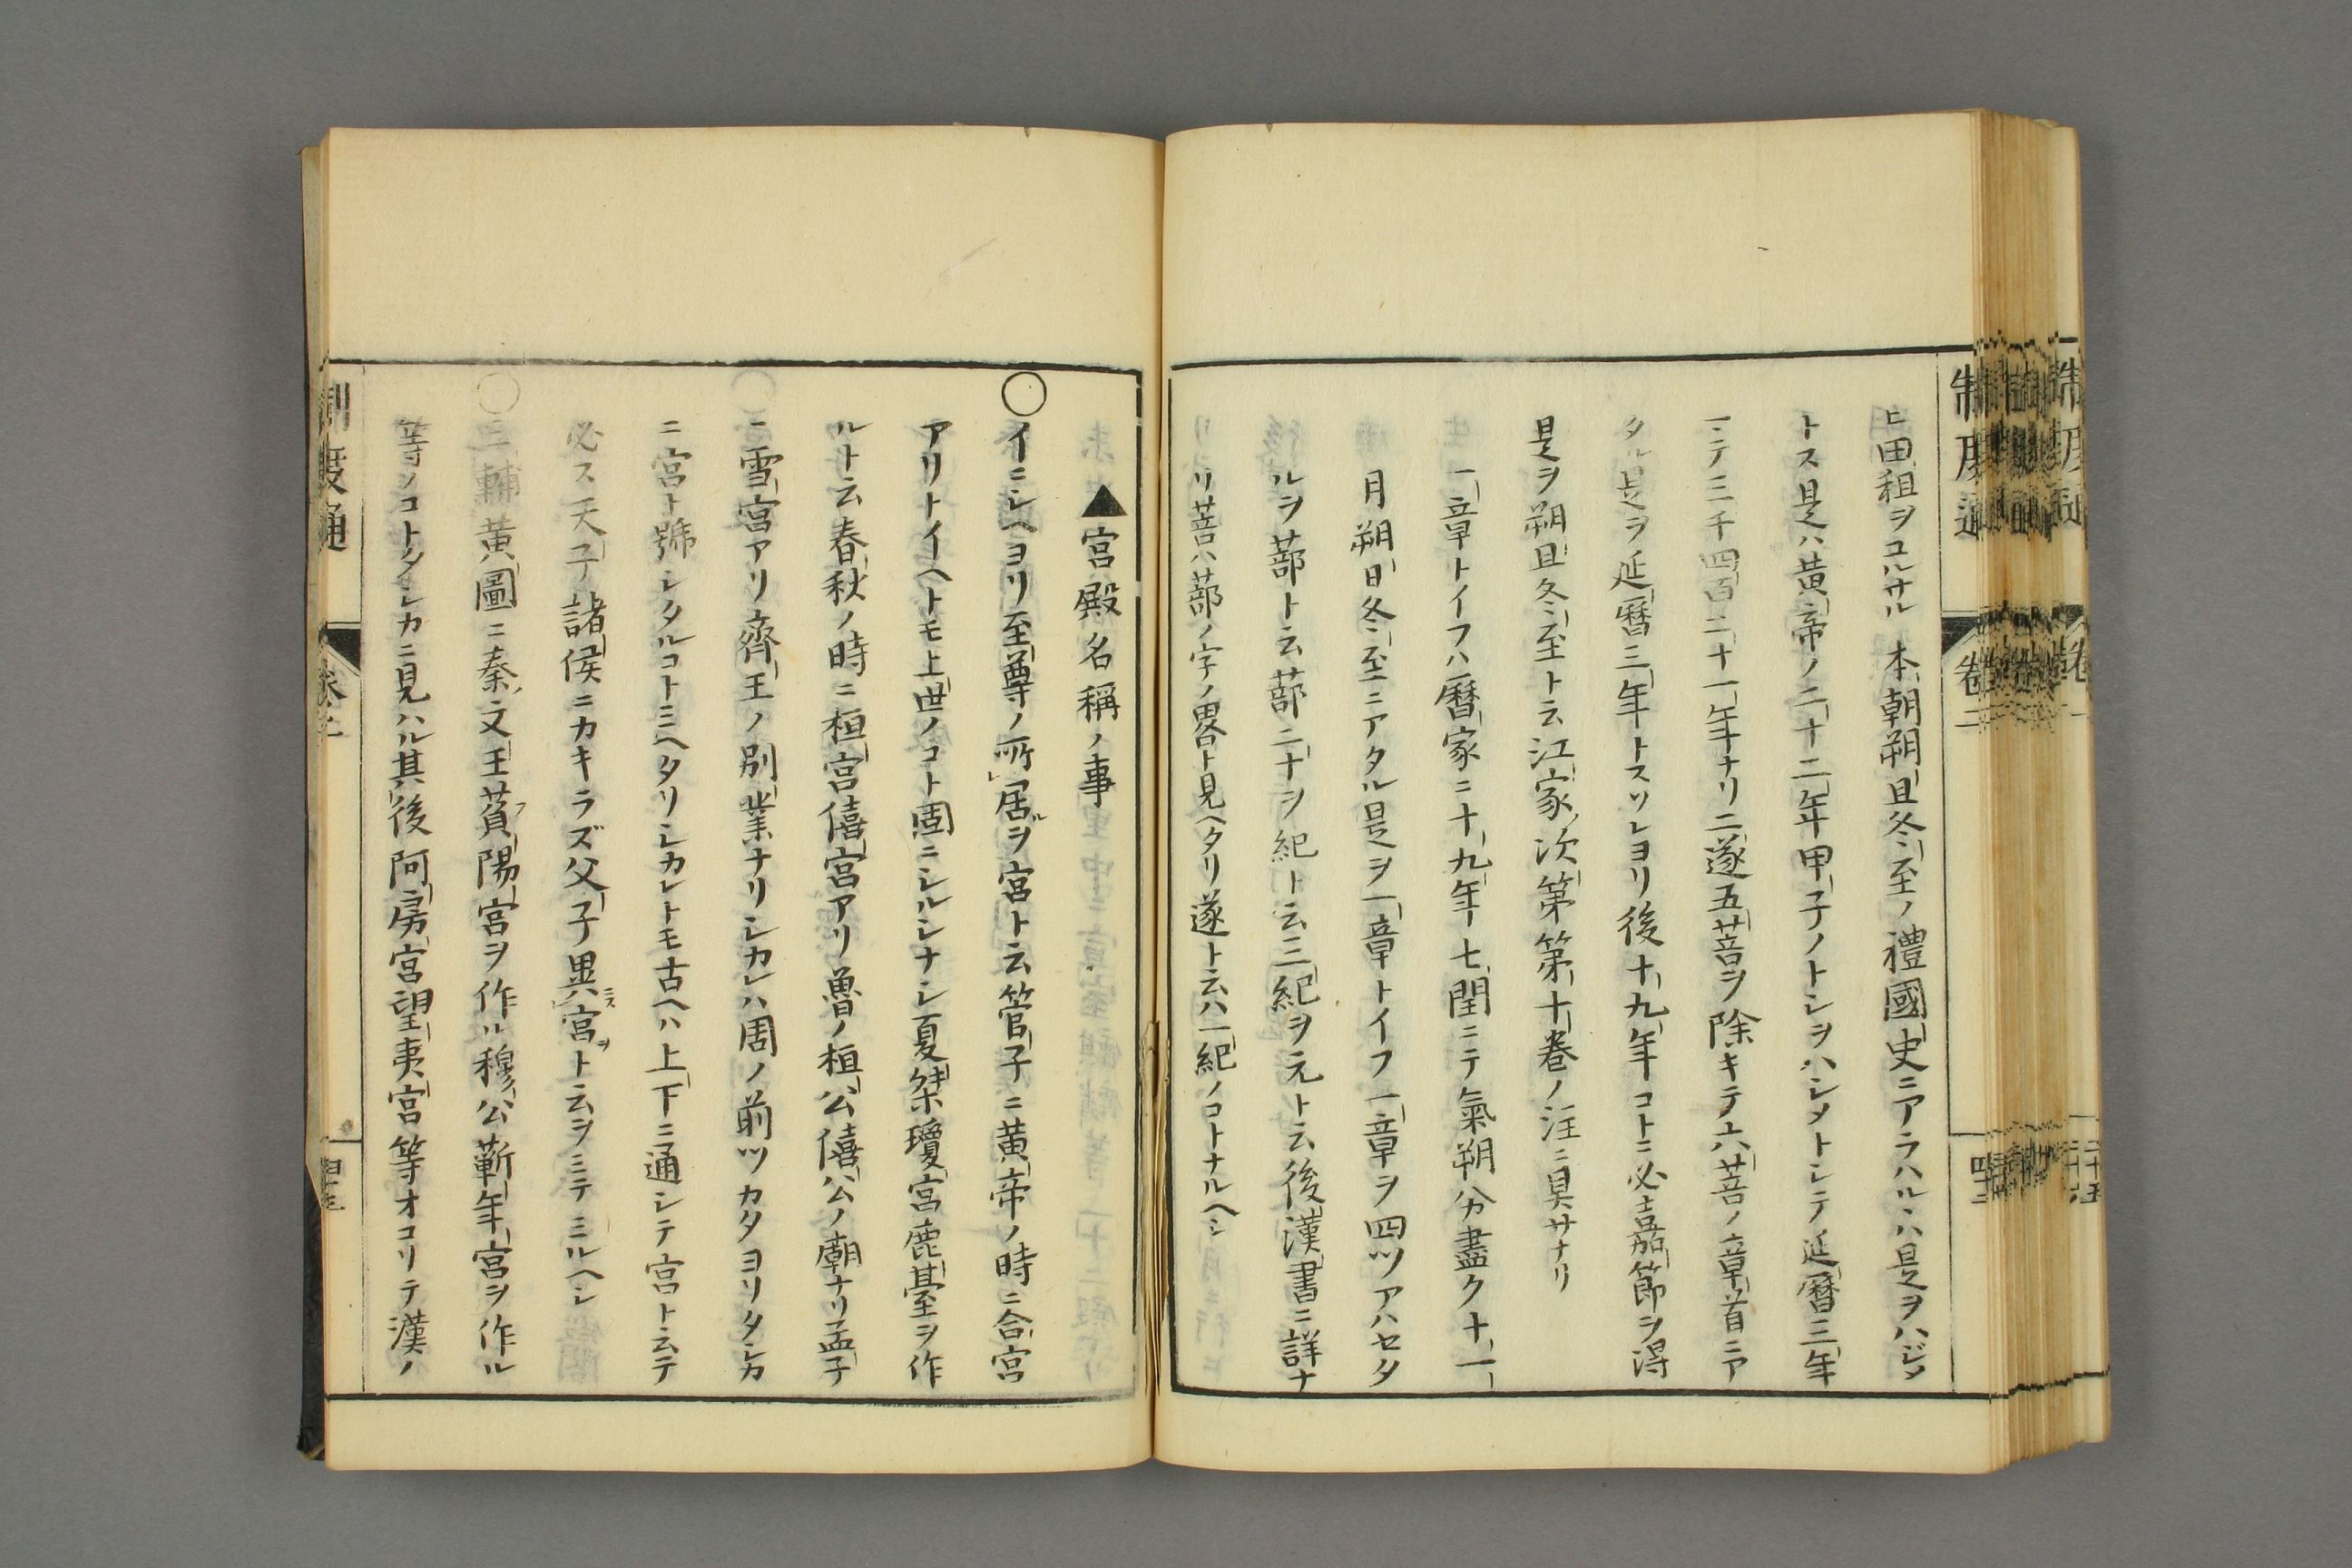 制度通 卷二 四十二
ヒ田租ヲユルサル 本朝朔旦冬至ノ禮國史ニアラハル丶ハ是ヲハジメ
トス是ハ黄帝ノ二十二年甲子ノトシヲハシメトシテ延暦三年
マテ三千四百二十一年ナリ二遂五菩ヲ除キテ六菩ノ章首ニア
タル是ヲ延暦三年トスソレヨリ後十九年コトニ必嘉節ヲ得
是ヲ朔旦冬至ト云江家次第第十巻ノ注ニ具サナリ
一章トイフハ暦家ニ十九年七閏ニテ氣朔分盡ク十一
月朔日冬至ニアタル是ヲ一章トイフ一章ヲ四ツアハセタ
ルヲ蔀ト云蔀二十ヲ紀ト云三紀ヲ元ト云後漢書ニ詳ナ
リ菩ハ蔀ノ字ノ畧ト見ヘタリ遂ト云ハ一紀ノコトナルヘシ
▲宮殿名稱ノ事
○イニシヘヨリ至尊ノ所レ居ルヲ宮ト云管子ニ黄帝ノ時ニ合宮
アリトイヘトモ上世ノコト固ニシルシナシ夏桀瓊宮鹿臺ヲ作
ルト云春秋ノ時ニ桓宮僖宮アリ魯ノ桓公僖公ノ廟ナリ孟子
ニ雪宮アリ齊王ノ別業ナリシカレハ周ノ前ツカタヨリタシカ
ニ宮ト號シタルコトミヘタリシカレトモ古ヘハ上下ニ通シテ宮ト云テ
必ス天子諸侯ニカキラズ父子異ニスレ宮ヲト云ヲミテミルヘシ
○三輔黄圖ニ秦ノ文王萯陽宮ヲ作ル穆公蘄年宮ヲ作ル
等ノコトタシカニ見ハル其後阿房宮望夷宮等オコリテ漢ノ
制度通 卷二